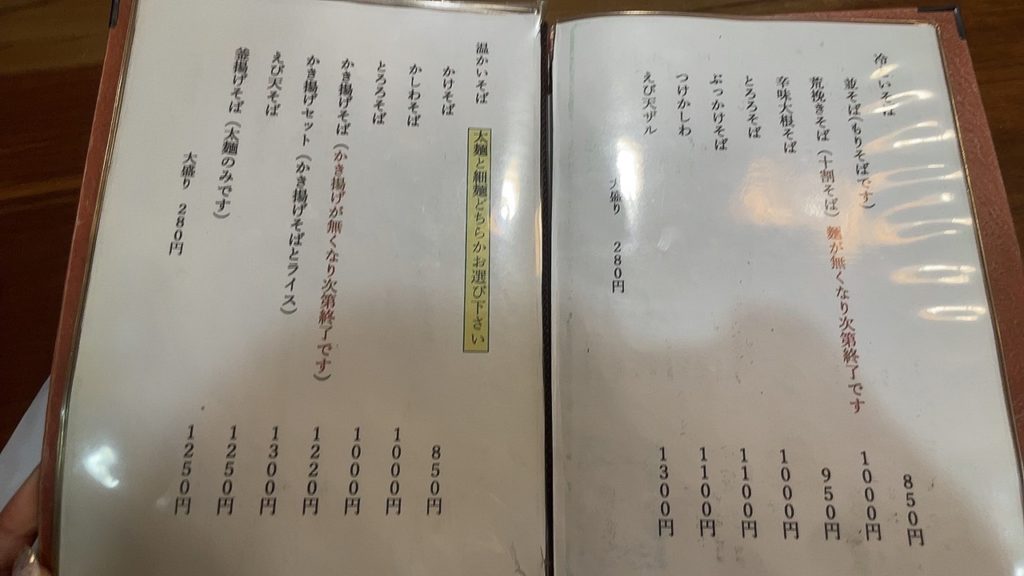 冷 いそば
並そば(もりそばです) 850円
荒挽きそば(十割そば)麺が無くなり次第終了です 1000円
辛味大根そば 950円
とろろそば 1000円
ぶっかけそば 1100円
つけかしわ 1100円
えび天ザル 1300円
大盛り 280円
温かいそば 太麺と細麺どちらかお選び下さい
かけそば 850円
かしわそば 1000円
とろろそば 1000円
かき揚げそば(かき揚げが無くなり次第終了です) 1220円
かき揚げセット(かき揚げそばとライス) 1300円
えび天そば 1250円
釜揚げそば(太麺のみです) 1250円
大盛り 280円